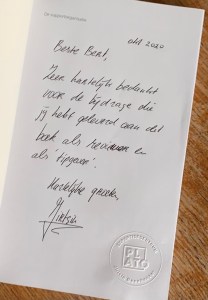 okt 2020
Beste Bert,
Zeer hartelijk bedankt
voor de bijdrage die
jij hebt geleverd aan dit
boek als recensent en
als 'tipgever'.
Hartelijke groeten,
PLATO